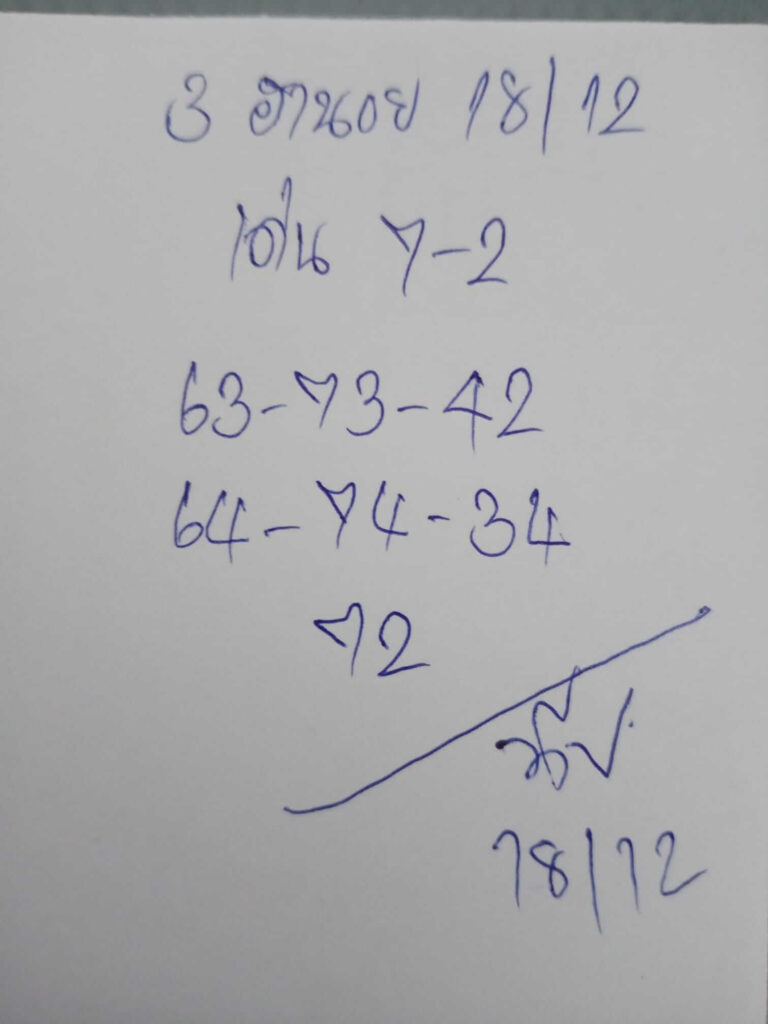 3 ฮานอย 18/12
เด่น 7-2
63-73-42
64-74-34
72
18/12